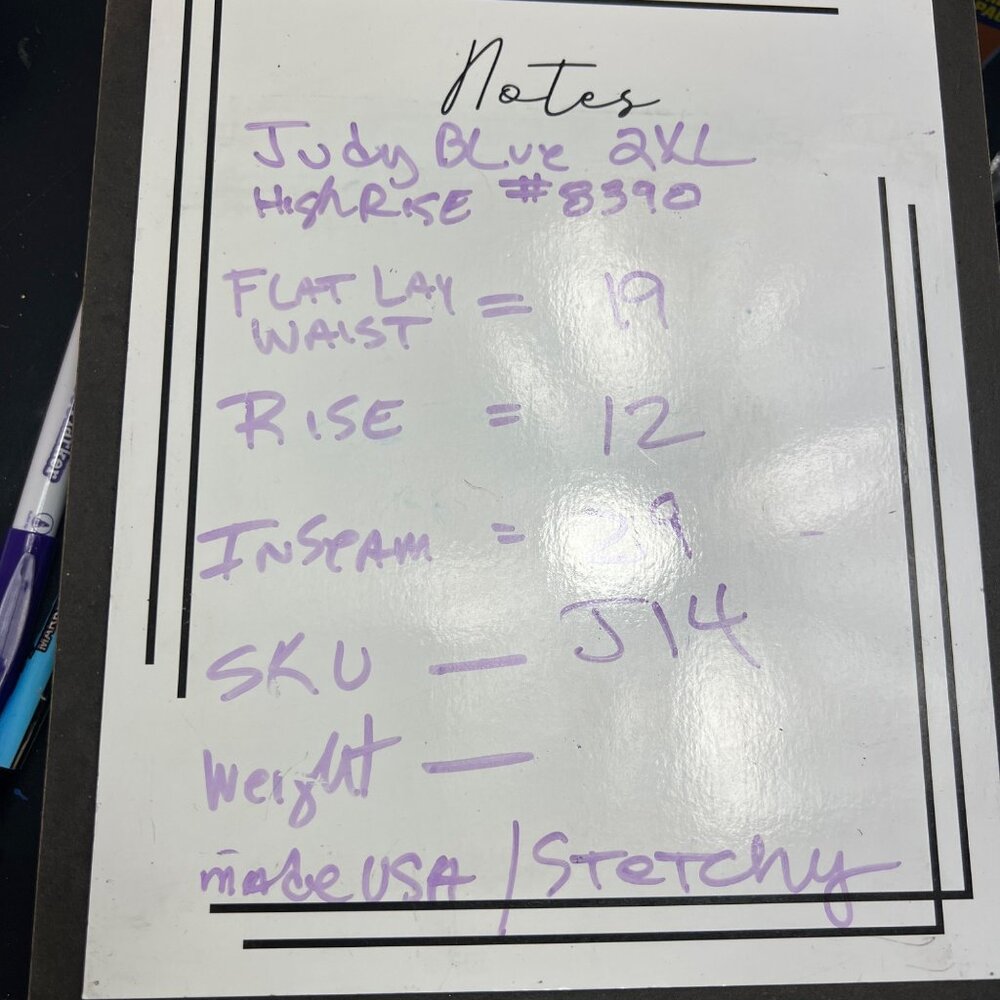 Notes
Judy BLue 2XL
HighRISE #8390
FLAT LAY = 19
WAIST
RISE = 12
INSeAM = 29 -
SKU — J14
Weight —
made USA / STeTchy